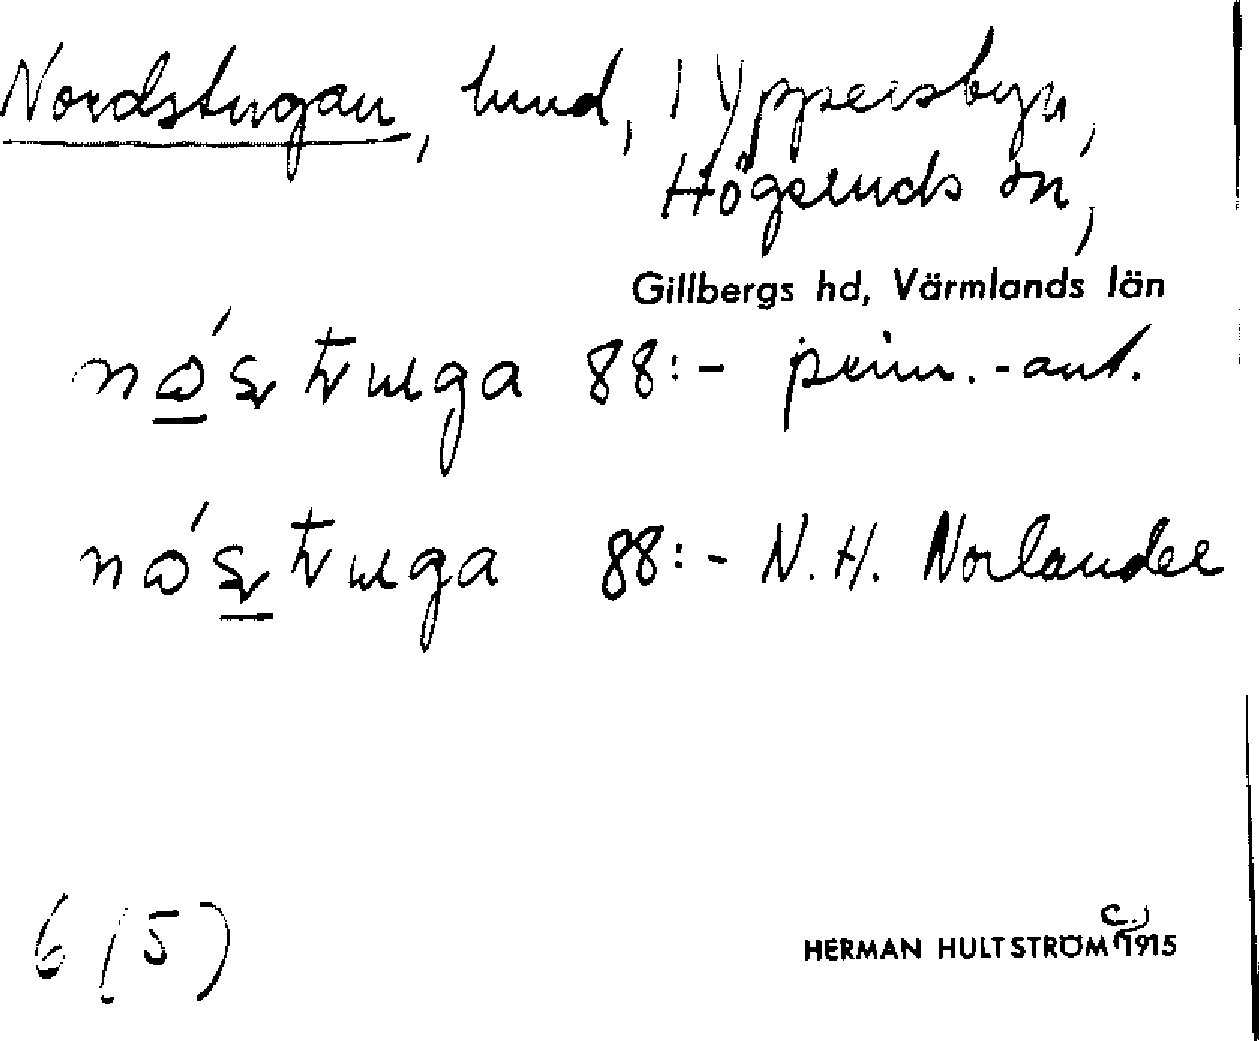 Nordstugan, hmd, 1 Yppersbyn,
Högeruds sn,
Gillbergs hd, Värmlands län
88:- prim.-ant.
88:- N. H. Norlander
6 (5)
HERMAN HULTSTRÖM C. 1915